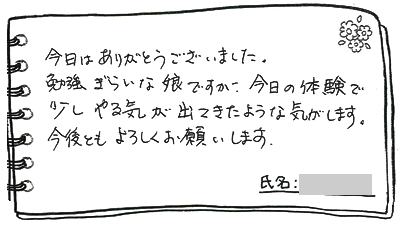 今日はありがとうございました。
勉強ぎらいな娘ですが、今日の体験で
少しやる気が出てきたような気がします。
今後ともよろしくお願いします。
氏名: